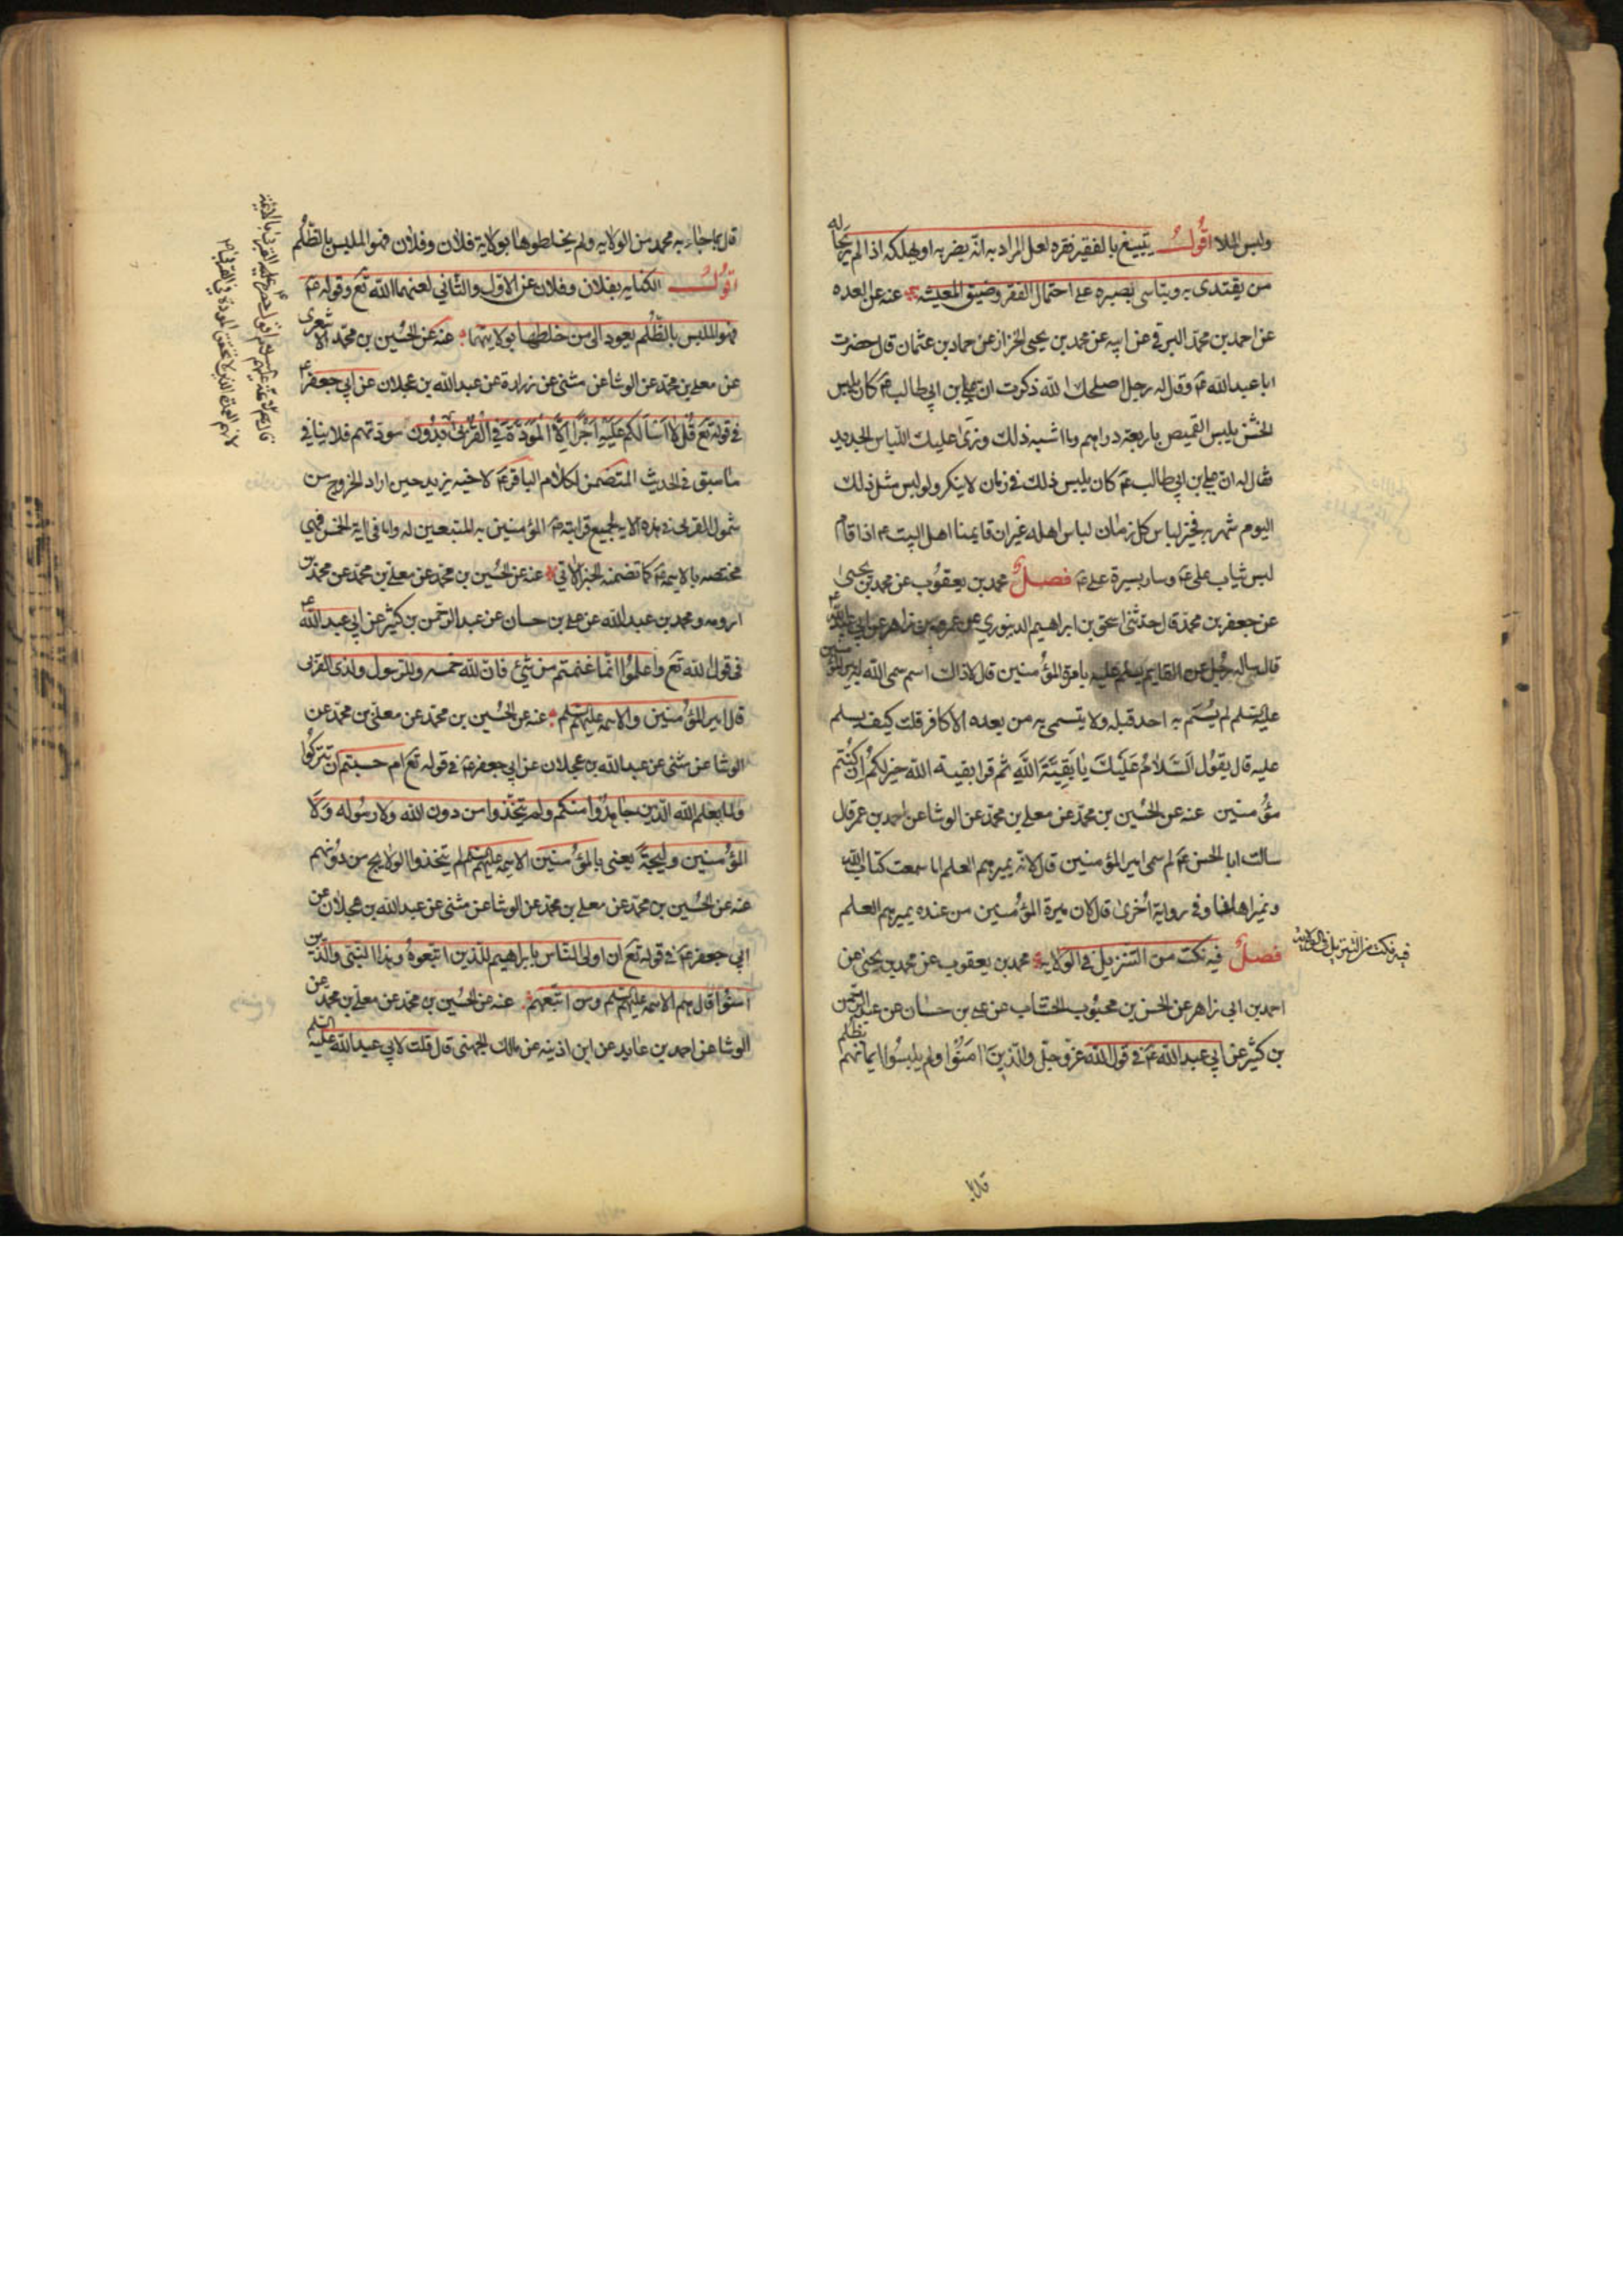 ولبس الملا اقول يتبيغ بالفقير فقره لعل المراد به انه يضر به او يهلكه اذا لم يرجا له
من يقتدى به ويتاسى بصبره على احتمال الفقر وضيق المعيشه عنه عن العده
عن احمد بن محمد البرقي عن ابيه عن محمد بن يحيى الخزاز عن حماد بن عثمان قال حضرت
ابا عبدالله عم وقال له رجل اصلحك الله ذكرت ان علي بن ابي طالب عم كان يلبس
الخشن يلبس القميص باربعة دراهم وما اشبه ذلك ونرى عليك اللباس الجديد
فقال له ان علي بن ابي طالب عم كان يلبس ذلك في زمان لا ينكر ولو لبس مثل ذلك
اليوم شهر به فخير لباس كل زمان لباس اهله غير ان قايمنا اهل البيت عم اذا قام
لبس ثياب علي عم وسار بسيرة علي عم فصل محمد بن يعقوب عن محمد بن يحيى
عن جعفر بن محمد قال حدثني اسحق بن ابراهيم الدينوري عن عمر بن زاهر عن ابي عبدالله عم
قال ساله رجل عن القايم يسلم عليه بامرة المؤمنين قال لا ذاك اسم سمى الله امير المؤمنين
عليه السلم لم يُسَم به احد قبله ولا يتسمى به من بعده الا كافر قلت كيف يسلم
عليه قال يقول اَلسَّلامُ عَلَيْكَ يا بَقِيَّةَ اللَّهِ ثم قرا بقية الله خير لكم ان كنتم
مؤمنين عنه عن الحسين بن محمد عن معلى بن محمد عن الوشا عن احمد بن عمر قال
سالت ابا الحسن عم لم سمى امير المؤمنين قال لانه يميرهم العلم اما سمعت كتاب الله
ونمير اهلنا وفي رواية اخرى قال لان ميرة المؤمنين من عنده يميرهم العلم
فصل فيه نكت من التنزيل في الولايه محمد بن يعقوب عن محمد بن يحيى عن
احمد بن ابي زاهر عن الحسن بن محبوب الخشاب عن علي بن حسان عن عبد الرحمن
بن كثير عن ابي عبدالله عم في قول الله عز وجل والذين امنوا ولم يلبسوا ايمانهم بظلم
فيه نكت من التنزيل في الولايه
قال بما
قال بما جاء به محمد من الولايه ولم يخلطوها بولاية فلان وفلان فهو الملبس بالظلم
اقول الكنايه بفلان وفلان عن الاول والثاني لعنهما الله تع وقوله عم
فهو الملبس بالظلم يعود الى من خلطها بولايتهما عنه عن الحسين بن محمد الاشعرى
عن معلى بن محمد عن الوشا عن مثنى عن زرارة عن عبدالله بن عجلان عن ابي جعفر عم
في قوله تع قُل لا اسالكم عليه اجرا الا المودة في القربى مودتهم فلا ينافي
ما سبق في الحديث المتضمن لكلام الباقر عم لاخيه يزيد حين اراد الخروج من
شمول القربى في هذه الايه لجميع قرابته عم المؤمنين به المتبعين له واما في اية الخمس فهي
مختصه بالايمه عم كما تضمنه الخبر الاتي عنه عن الحسين بن محمد عن معلى بن محمد عن محمد بن
ارومه ومحمد بن عبدالله عن علي بن حسان عن عبد الرحمن بن كثير عن ابي عبد الله عم
في قول الله تع واعلموا انما غنمتم من شئ فان لله خمسه وللرسول ولذى القربى
قال امير المؤمنين والايمه عليهم السلم عنه عن الحسين بن محمد عن معلى بن محمد عن
الوشا عن مثنى عن عبدالله بن عجلان عن ابي جعفر عم في قوله تع ام حسبتم ان تتركوا
ولما يعلم الله الذين جاهدوا منكم ولم يتخذوا من دون الله ولا رسوله وَلَا
المؤمنين وليجة يعنى بالمؤمنين الايمه عليهم السلم لم يتخذوا الولايج من دونهم
عنه عن الحسين بن محمد عن معلى بن محمد عن الوشا عن مثنى عن عبدالله بن عجلان عن
ابي جعفر عم في قوله تع ان اولى الناس بابراهيم للذين اتبعوه وهذا النبى والذين
امنوا قال هم الايمه عليهم السلم ومن اتبعهم عنه عن الحسين بن محمد عن معلى بن محمد عن
الوشا عن احمد بن عايد عن ابن اذينه عن مالك الجهنى قال قلت لابي عبدالله عليه السلم